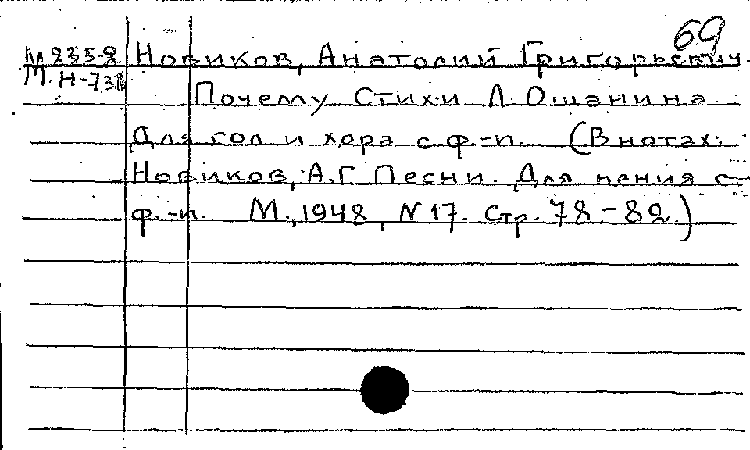 69
М 2358 Новиков, Анатолий Григорьевич.
М. Н-731 Почему Стихи Л. Ошанина
Для гол и хора с ф.-п. (В нотах:
Новиков, А.Г Песни. Для пения с
ф.-п. М., 1948, N 17. Стр. 78-82.)